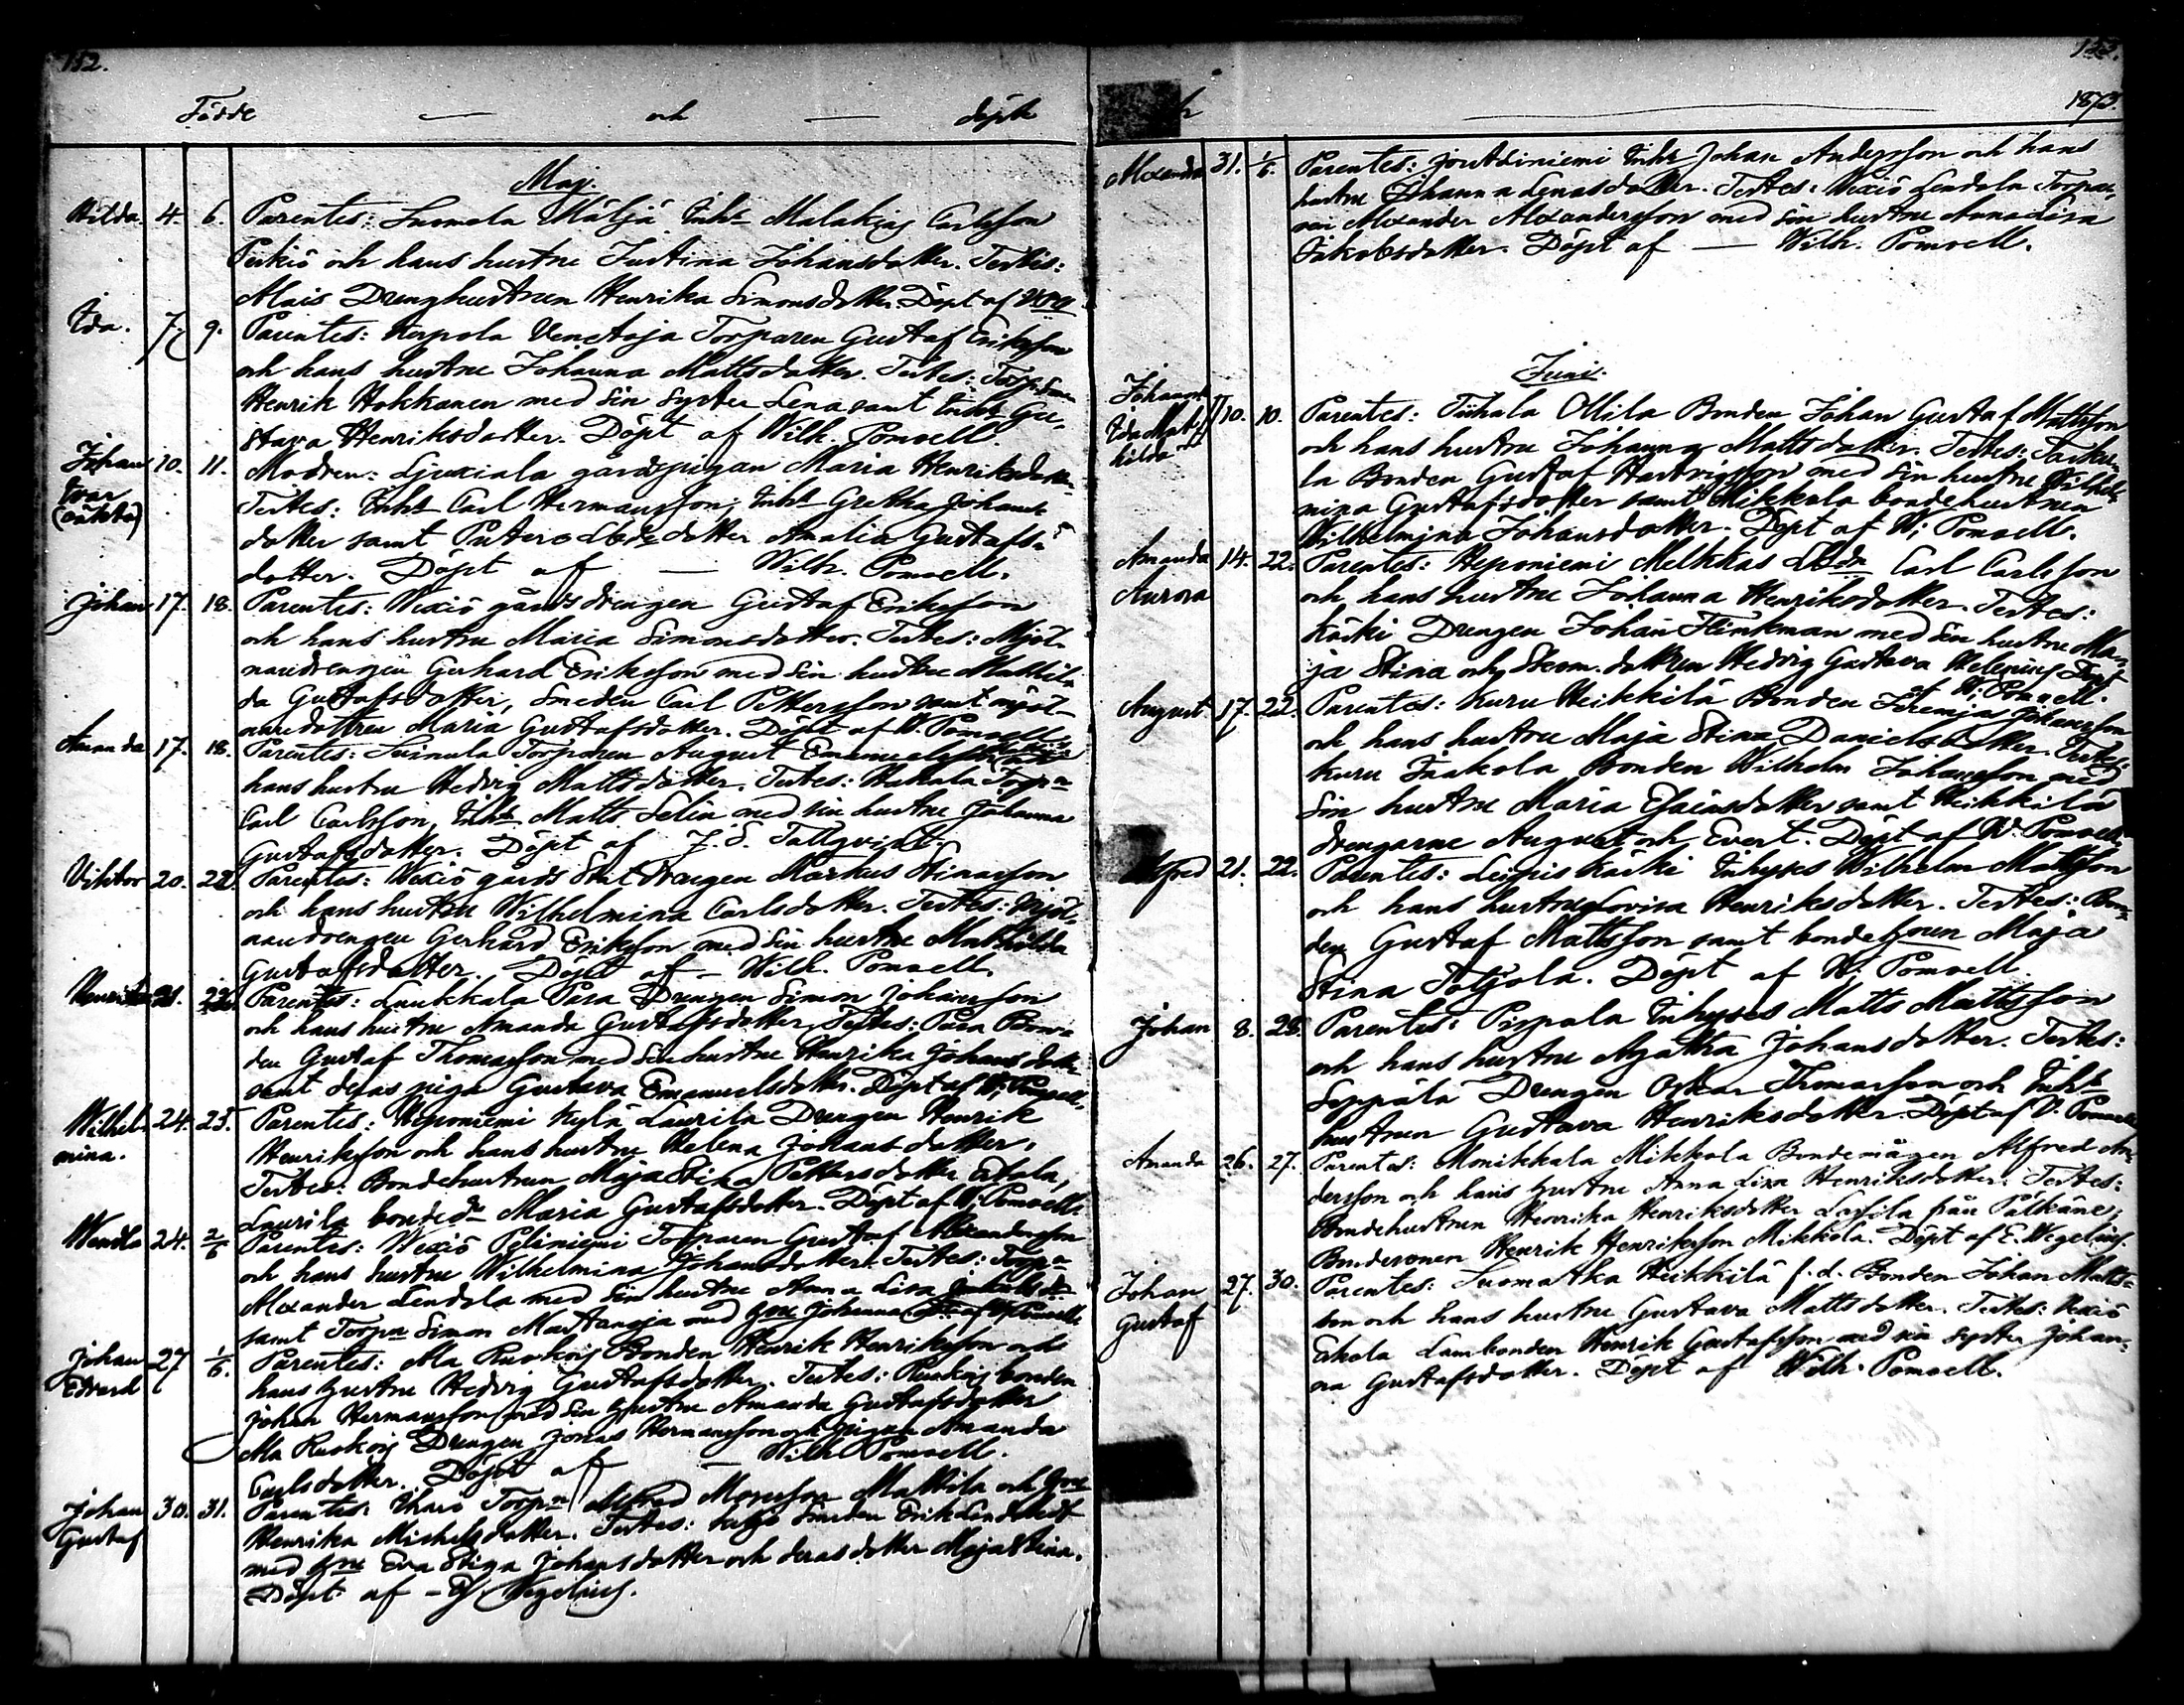 152.
Födde — och — döpte
Maj.
Hilda. 4. 6. Parentes: Luomela Mäljä Inh. Malakias Carlsson
och hans hustru Justina Johansdotter. Testis:
Alais Drenghustrun Henrika Simonsdotter. Döpt af
Ida. 7. 9. Parentes: Kerpola Torparen Gustaf Eriksson
och hans hustru Johanna Mattsdotter. Testes:
Henrik Hokkanen med sin syster Lena samt Inh. Gu-
stava Henriksdotter. Döpt af Wilh. Pomoell.
Johan 10. 11. Modren: Ljuxiala gårdspigan Maria Henriksdotter
Ivar Testes: Inh. Carl Hermansson, Inh. Gretha Johans-
(oäkta) dotter samt dotter Amalia Gustafs-
dotter. Döpt af — Wilh. Pomoell.
Johan 17. 18. Parentes: Wexiö gårdsdrengen Gustaf Eriksson
och hans hustru Maria Simonsdotter. Testes: Mjöl-
naredrengen Gerhard Eriksson med sin hustru Mathil-
da Gustafsdotter, Smeden Carl Pettersson samt mjöl-
naredottren Maria Gustafsdotter. Döpt af W. Pomoell.
Amanda 17. 18. Parentes: Torparen August Emanuelsson
hans hustru Hedvig Mattsdotter. Testes: Hakala Torpn
Carl Carlsson, Inh. Matts Selin med sin hustru Johanna
Gustafsdotter. Döpt af J. S. Tallqvist.
Viktor 20. 22. Parentes: Wexiö gårds Statdrengen Markus
och hans hustru Wilhelmina Carlsdotter. Testes: Mjöl-
naredrengen Gerhard Eriksson med sin hustru Mathilda
Gustafsdotter. Döpt af — Wilh. Pomoell.
21. Parentes: Luukkala Para Drengen Simon Johansson
och hans hustru Amanda Gustafsdotter. Testes: Para Bon-
den Gustaf Thomasson med sin hustru Henrika Johansdotter
samt deras piga Gustava Emanuelsdotter. Döpt af W. Pomoell.
Wilhel- 24. 25. Parentes: Heponiemi Kylä Laurila Drengen Henrik
mina. Henriksson och hans hustru Helena Johansdotter.
Testes: Bondehustrun Maja Stina Pettersdotter Eskola,
Laurila bonded. Maria Gustafsdotter. Döpt af W. Pomoell.
Wendla 24. 2/6 Parentes: Wexiö Torparen Gustaf Alexandersson
och hans hustru Wilhelmina Johansdotter. Testes: Torpn
Alexander Lendola med sin hustru Anna Lisa
samt Torpn Simon med hru Johanna
Johan 27 1/6. Parentes: Ala Ruokois Bonden Henrik Henriksson och
Edvard hans hustru Hedvig Gustafsdotter. Testes: Ruokois bonden
Johan Hermansson med sin hustru Amanda Gustafsdotter
Ala Ruokois Drengen Jonas Hermansson och pigan Amanda
Carlsdotter. Döpt af — Wilh. Pomoell.
Johan 30. 31. Parentes: Torpn Alfred Mattila och hru
Gustaf Henrika Michelsdotter. Testes: Smeden Erik
med hru Eva Stina Johansdotter och deras dotter Maja Stina.
Döpt af — Wegelius.
153.
1873.
Alexandra 31. 1/6. Parentes: Inh. Johan Andersson och hans
hustru Johanna Lenasdotter. Testes: Wexiö Lendola Torpa-
ren Alexander Alexandersson med sin hustru Anna Lisa
Jakobsdotter. Döpt af — Wilh. Pomoell.
Juni.
Johanna
Ida Mat- 10. 10. Parentes: Tiihala Ollila Bonden Johan Gustaf Mattsson
hilda och hans hustru Johanna Mattsdotter. Testes:
la Bonden Gustaf Hartvigsson med sin hustru Wilhel-
mina Gustafsdotter samt Mikkola bondehustrun
Wilhelmina Johansdotter. Döpt af W. Pomoell.
Amanda 14. 22. Parentes: Heponiemi Melkkas Carl Carlsson
Aurora och hans hustru Johanna Henriksdotter. Testes:
Käcki Drengen Johan Flinkman med sin hustru Ma-
ja Stina och dottren Hedvig Gustava Helenius Döpt
af W. Pomoell.
August 17. 22. Parentes: Kuru Heikkilä Bonden Jeremias Johansson
och hans hustru Maja Stina Danielsdotter. Testes:
Kuru Jaakola Bonden Wilhelm Johansson med
sin hustru Maria Esaiasdotter samt Heikkilä
drengarne August och Evert. Döpt af W. Pomoell.
Alfred 21. 22. Parentes: Leipis Käcki Inhyses Wilhelm Mattsson
och hans hustru Lovisa Henriksdotter. Testes: Bon-
den Gustaf Mattsson samt bondehrun Maja
Stina Potjola. Döpt af W. Pomoell.
Johan 8. 25. Parentes: Pispala Inhyses Matts Mattsson
och hans hustru Agatha Johansdotter. Testes:
Seppälä Drengen Oskar Thomasson och Inh.
hustrun Gustava Henriksdotter. Döpt af W. Pomoell
Amanda 26. 27. Parentes: Monikkala Mikkola Bondemågen Alfred An-
dersson och hans hustru Anna Lisa Henriksdotter. Testes:
Bondehustrun Henrika Henriksdotter från Pälkäne,
Bondesonen Henrik Henriksson Mikkola. Döpt af E. Wegelius.
Johan 27. 30. Parentes: Suomatka Heikkilä f.d. Bonden Johan Matts-
Gustaf son och hans hustru Gustava Mattsdotter. Testes: Wexiö
Eskola Lambonden Henrik Gustafsson med sin syster Johan-
na Gustafsdotter. Döpt af Wilh. Pomoell.